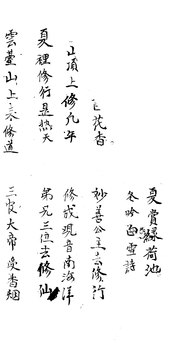 夏賞綠荷池
冬吟白雪詩
花香
妙善公主去修行
山頂上修九年
修成現音南海洋
夏裡修行是熱天
弟兄三位去修仙
雲臺山上去修道
三官大帝受香烟